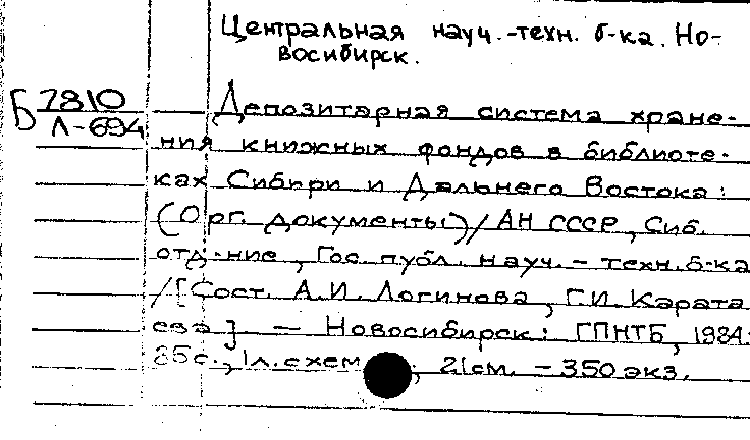 Центральная науч.-техн. б-ка. Но-
восибирск.
Б 7810
Л-694
Депозитарная система хране-
ния книжных фондов в библиоте-
ках Сибири и Дальнего Востока:
(Орг. документы)/АН СССР, Сиб.
отд-ние, Гос. публ. науч.-техн. б-ка
/[Сост. А.И. Логинова, Г.И. Карата
ева] — Новосибирск: ГПНТБ, 1984.
85с., 1л. схем ; 21см. – 350 экз.